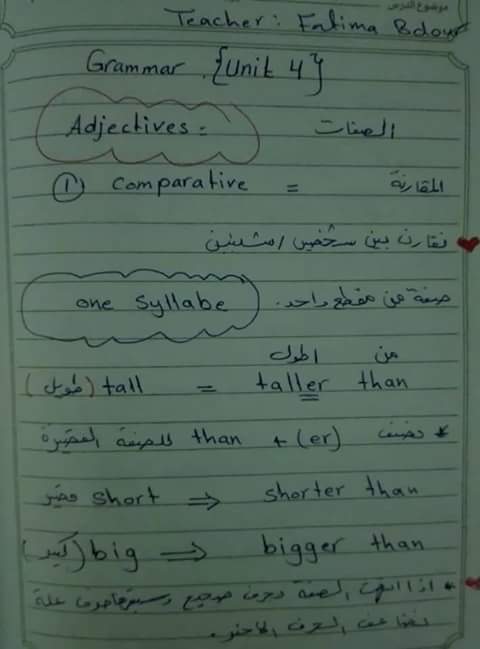 موضوع الدرس
Teacher: Fatima Bdour
Grammar. {Unit 4}
Adjectives = الصفات
① Comparative = المقارنة
نقارن بين شخصين / شيئين
one Syllabe صفة من مقطع واحد.
من اطول
(طويل) tall = taller than
* نضيف (er) + than للصفة القصيرة
قصير short ⇒ shorter than
(كبير) big ⇒ bigger than
* اذا انتهت الصفة بحرف صحيح وسبقها حرف علة
نضاعف الحرف الاخير.